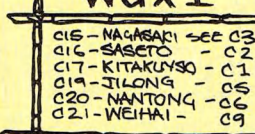 C15-NAGASAKI SEE C3
C16-SASETO - C2
C17-KITAKUYSO - C1
C19-JILONG - C5
C20-NANTONG - C6
C21-WEIHAI - C9